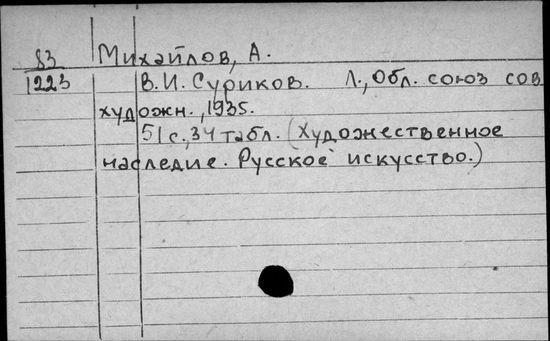 83 Михайлов, А.
1223 В.И. Суриков. Л., Обл. союз сов
худужн., 1935.
51 с., 34 табл. (Художественное
наследие. Русское искусство.)